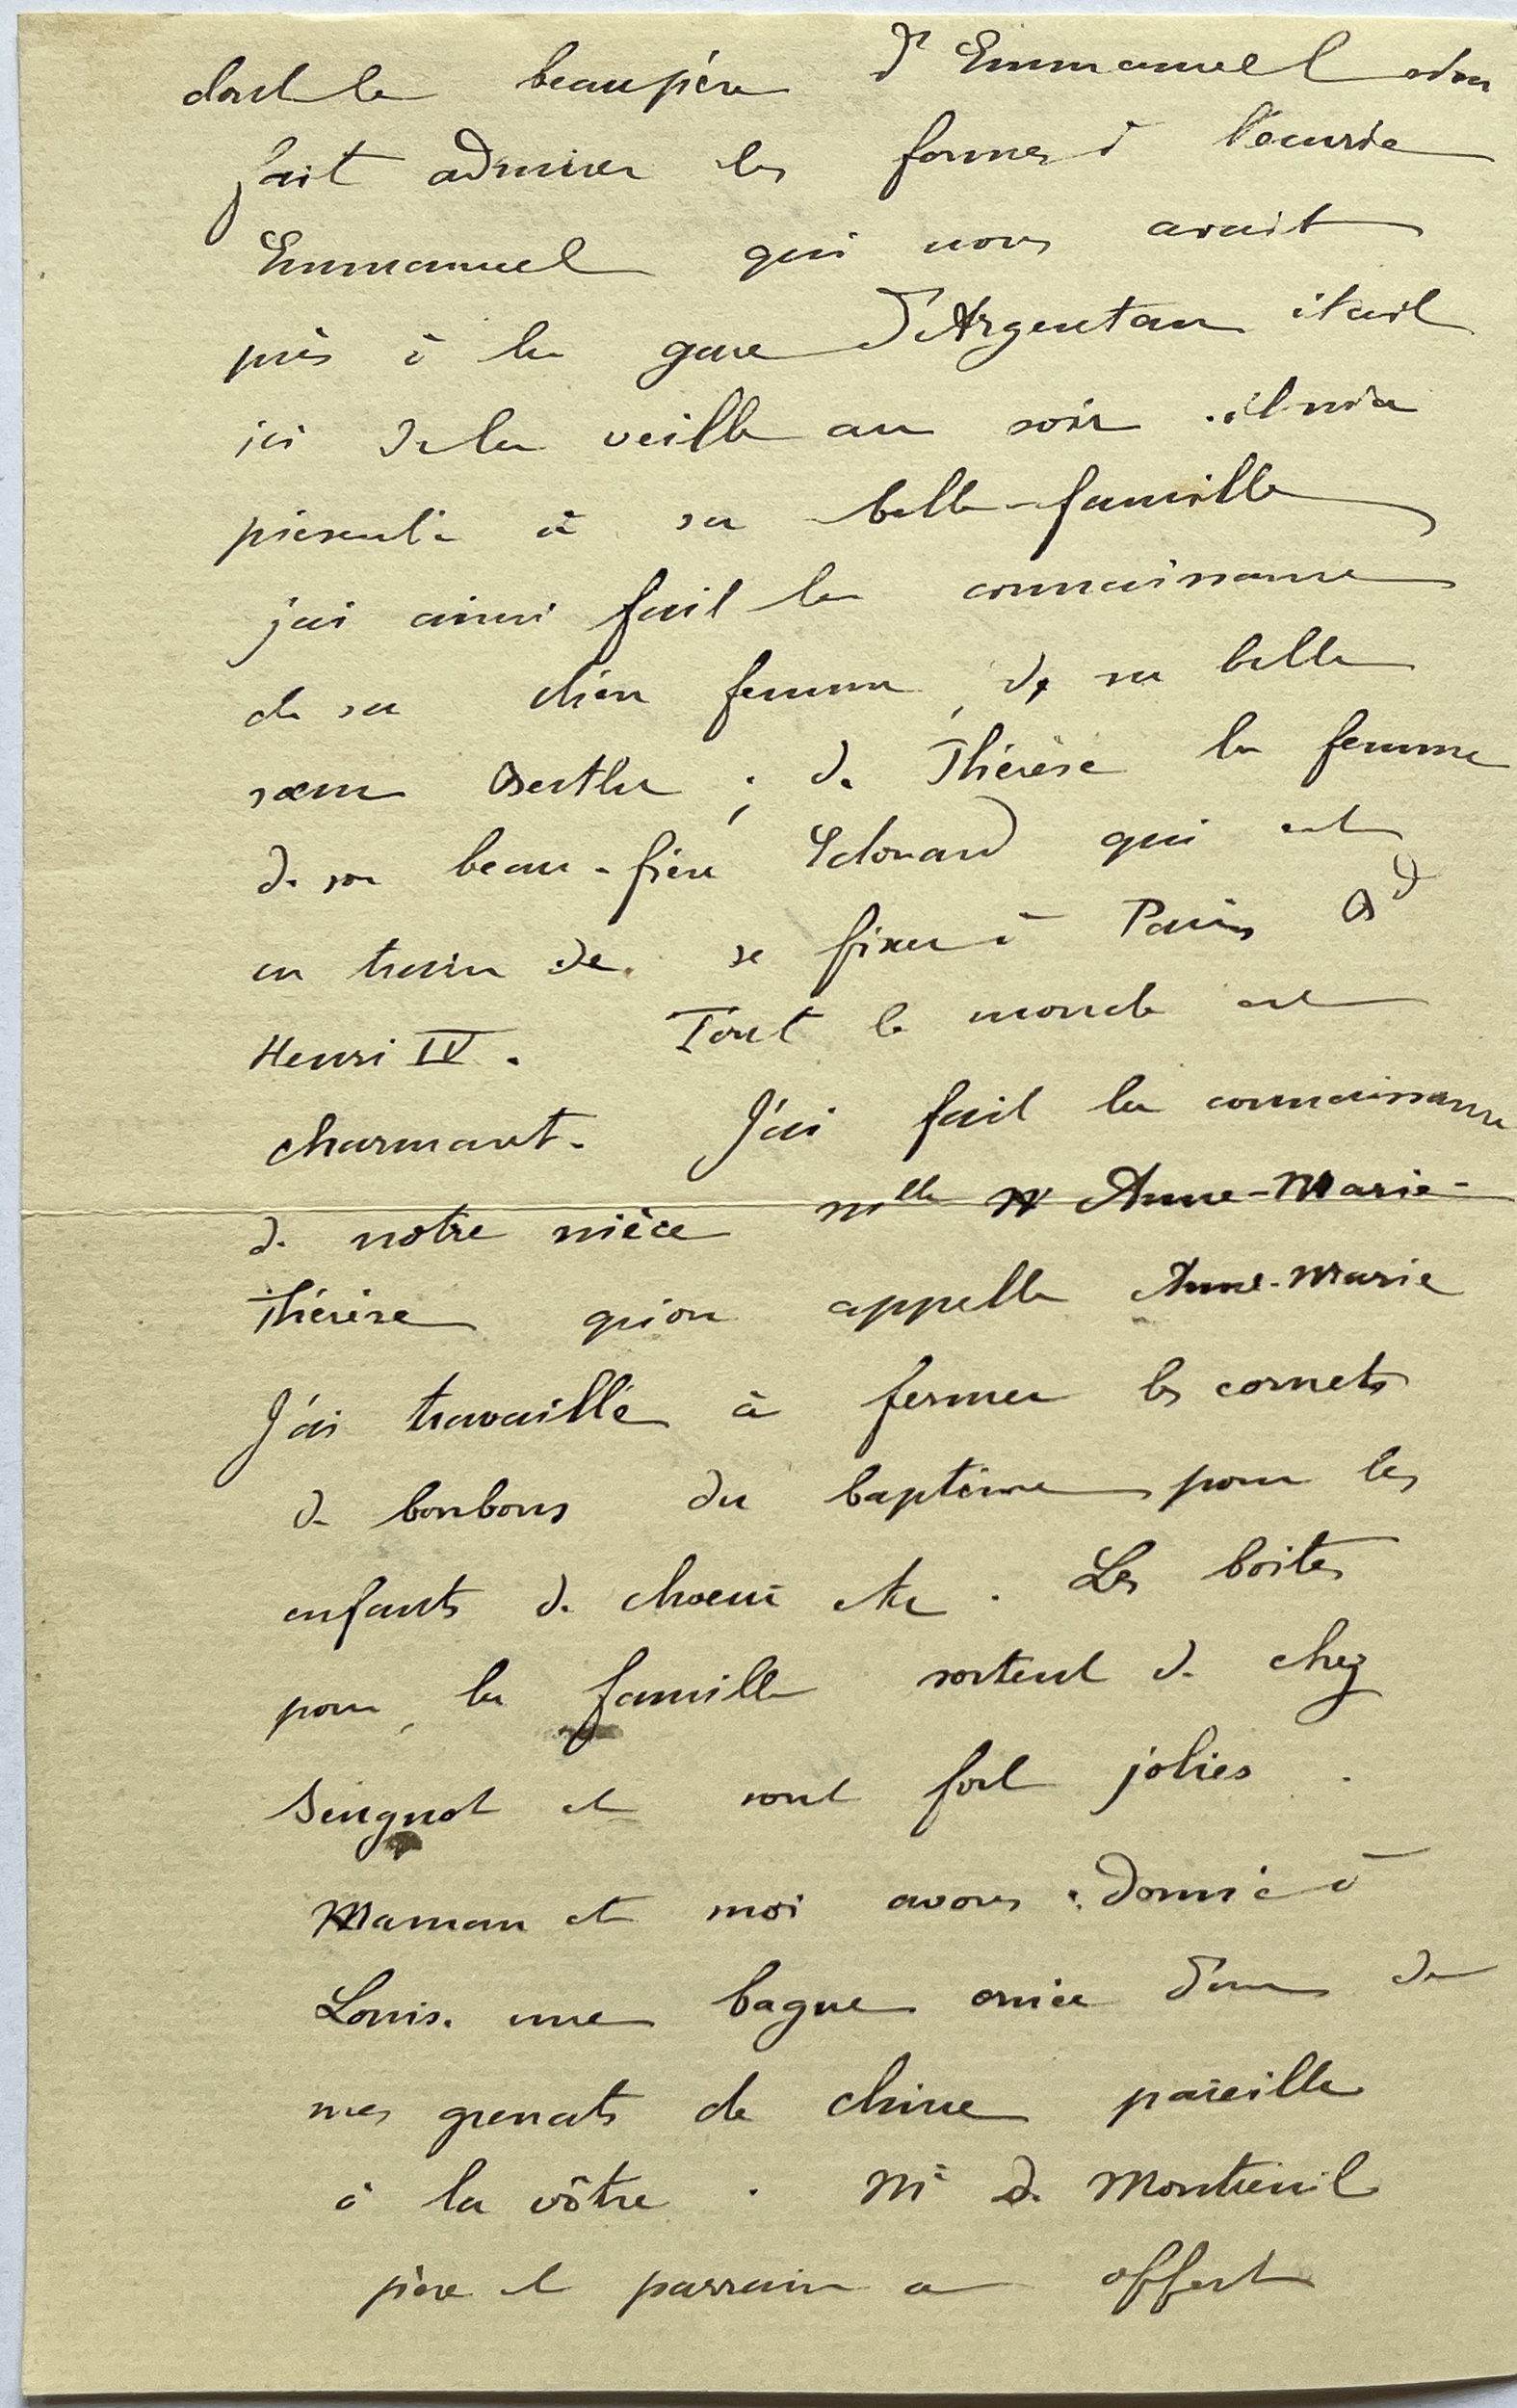 dont le beaupère d'Emmanuel
fait admirer les formes à l'écurie
Emmanuel qui nous avait
pris à la gare d'Argentan était
ici de la veille au soir . il m'a
présenté à sa belle-famille
j'ai ainsi fait la connaissance
de sa chère femme, de sa belle
sœur Berthe ; de Thérèse la femme
de son beau-frère Edouard qui est
en train de se fixer à Paris Bd
Henri IV . Tout le monde est
charmant. J'ai fait la connaissance
de notre nièce Mlle Anne-Marie-
Thérèse qu'on appelle Anne-Marie
J'ai travaillé à fermer les cornets
de bonbons du baptême pour les
enfants de chœur etc . Les boites
pour la famille sortent de chez
Seugnot et sont fort jolies .
Maman et moi avons donné à
Louis. une bague ornée d'un de
mes grenats de chine pareille
à la vôtre . Mr de Montreuil
père et parrain a offert